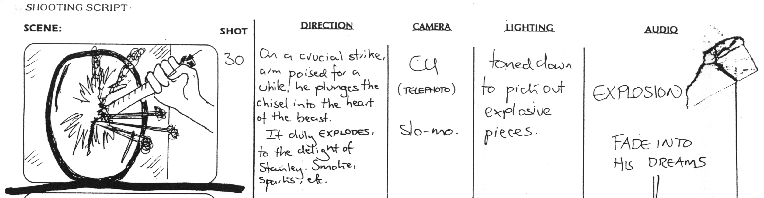 SHOOTING SCRIPT
SCENE:
SHOT
DIRECTION
CAMERA
LIGHTING
AUDIO
30
On a crucial strike,
arm poised for a
while, he plunges the
chisel into the heart
of the beast.
It duly EXPLODES,
to the delight of
Stanley. Smoke,
sparks, etc.
CU
(TELEPHOTO)
Slo-mo.
toned down
to pick out
explosive
pieces.
EXPLOSION
FADE INTO
HIS DREAMS